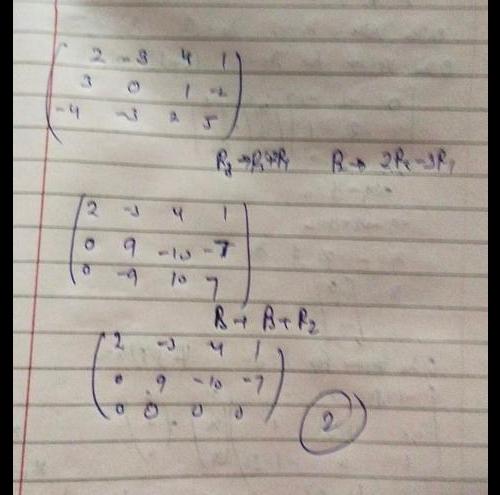 2 -3 4 1
3 0 1 -2
-4 -3 2 5
R₃ → R₃+2R₁ R₂ → 2R₂-3R₁
2 -3 4 1
0 9 -10 -7
0 -9 10 7
R₃ → R₃+R₂
2 -3 4 1
0 9 -10 -7
0 0 0 0
2